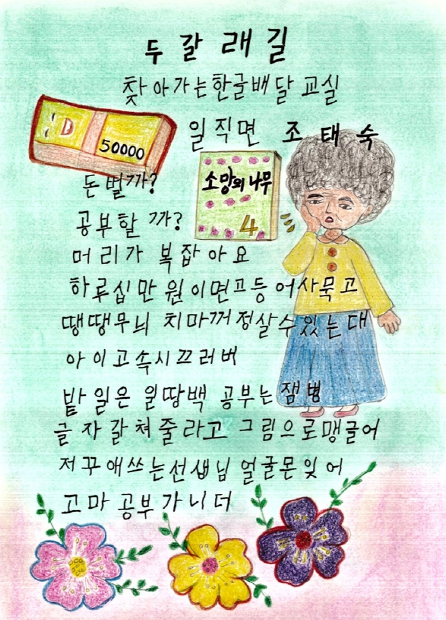 두 갈 래 길
찾아가는 한글배달 교실
일직면 조태숙
D
50000
돈벌까?
소망의 나무
4
공부할까?
머리가 복잡아요
하루십만원이면 프등어사묵고
땡땡무늬 치마꺼정살수있는대
아이고속시끄러버
밭일은 일땅백 공부는 잼병
글자갈쳐줄라고 그림으로맹글어
저꾸애쓰는선샘님 얼굴몬잊어
고마 공부가니더